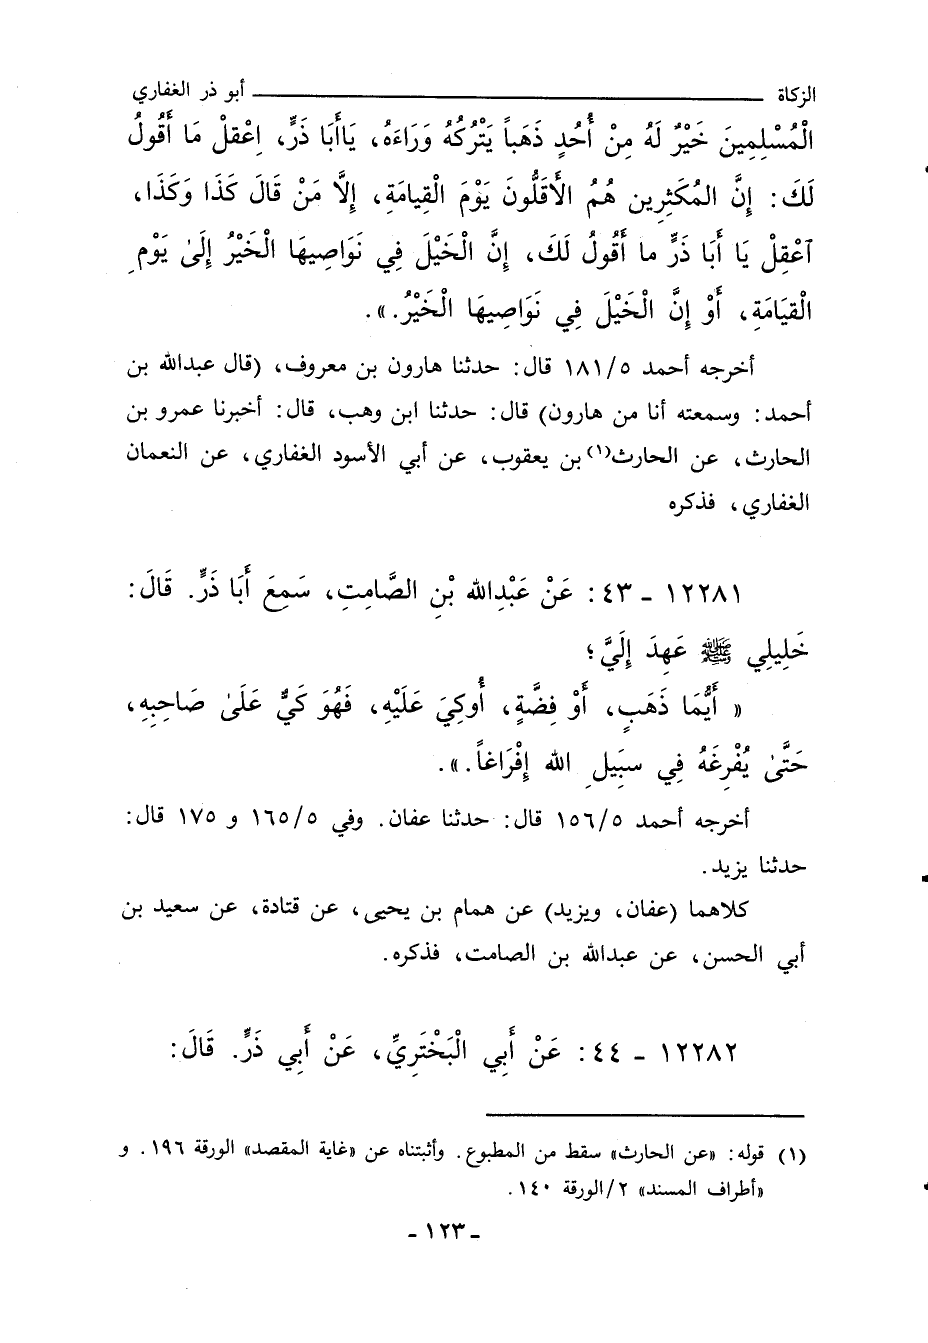 الزكاة ـــــــــ أبو ذر الغفاري
الْمُسْلِمِينَ خَيْرٌ لَهُ مِنْ أُحُدٍ ذَهَباً يَتْرُكُهُ وَرَاءَهُ، يَاأَبَا ذَرٍّ، اِعْقِلْ مَا أَقُولُ
لَكَ: إِنَّ المُكَثِرِين هُمُ الأَقَلُّونَ يَوْمَ الْقِيامَةِ، إِلَّا مَنْ قَالَ كَذَا وَكَذَا،
آعْقِلْ يَا أَبَا ذَرٍّ ما أَقُولُ لَكَ، إِنَّ الْخَيْلَ فِي نَوَاصِيهَا الْخَيْرُ إِلَىٰ يَوْمِ
الْقيَامَةِ، أَوْ إِنَّ الْخَيْلَ فِي نَوَاصِيهَا الْخَيْرُ.».
أخرجه أحمد ١٨١/٥ قال: حدثنا هارون بن معروف، (قال عبدالله بن
أحمد: وسمعته أنا من هارون) قال: حدثنا ابن وهب، قال: أخبرنا عمرو بن
الحارث، عن الحارث(١) بن يعقوب، عن أبي الأسود الغفاري، عن النعمان
الغفاري، فذكره
١٢٢٨١ ـ ٤٣: عَنْ عَبْدِالله بْنِ الصَّامِتِ، سَمِعَ أَبَا ذَرٍّ. قَالَ:
خَلِيلِي ﷺ عَهِدَ إِلَيَّ؛
« أَيُّمَا ذَهَبٍ، أَوْ فِضَّةٍ، أُوكِيَ عَلَيْهِ، فَهُوَ كَيٌّ عَلَىٰ صَاحِبِهِ،
حَتَّىٰ يُفْرِغَهُ فِي سبَيلِ الله إِفْرَاغاً.».
أخرجه أحمد ١٥٦/٥ قال: حدثنا عفان. وفي ١٦٥/٥ و ١٧٥ قال:
حدثنا يزيد.
كلاهما (عفان، ويزيد) عن همام بن يحيى، عن قتادة، عن سعيد بن
أبي الحسن، عن عبدالله بن الصامت، فذكره.
١٢٢٨٢ ـ ٤٤: عَنْ أَبِي الْبَخْتَرِيِّ، عَنْ أَبِي ذَرٍّ. قَالَ:
(١) قوله: «عن الحارث» سقط من المطبوع. وأثبتناه عن «غاية المقصد» الورقة ١٩٦. و
«أطراف المسند» ٢/الورقة ١٤٠.
ـ ١٢٣ ـ